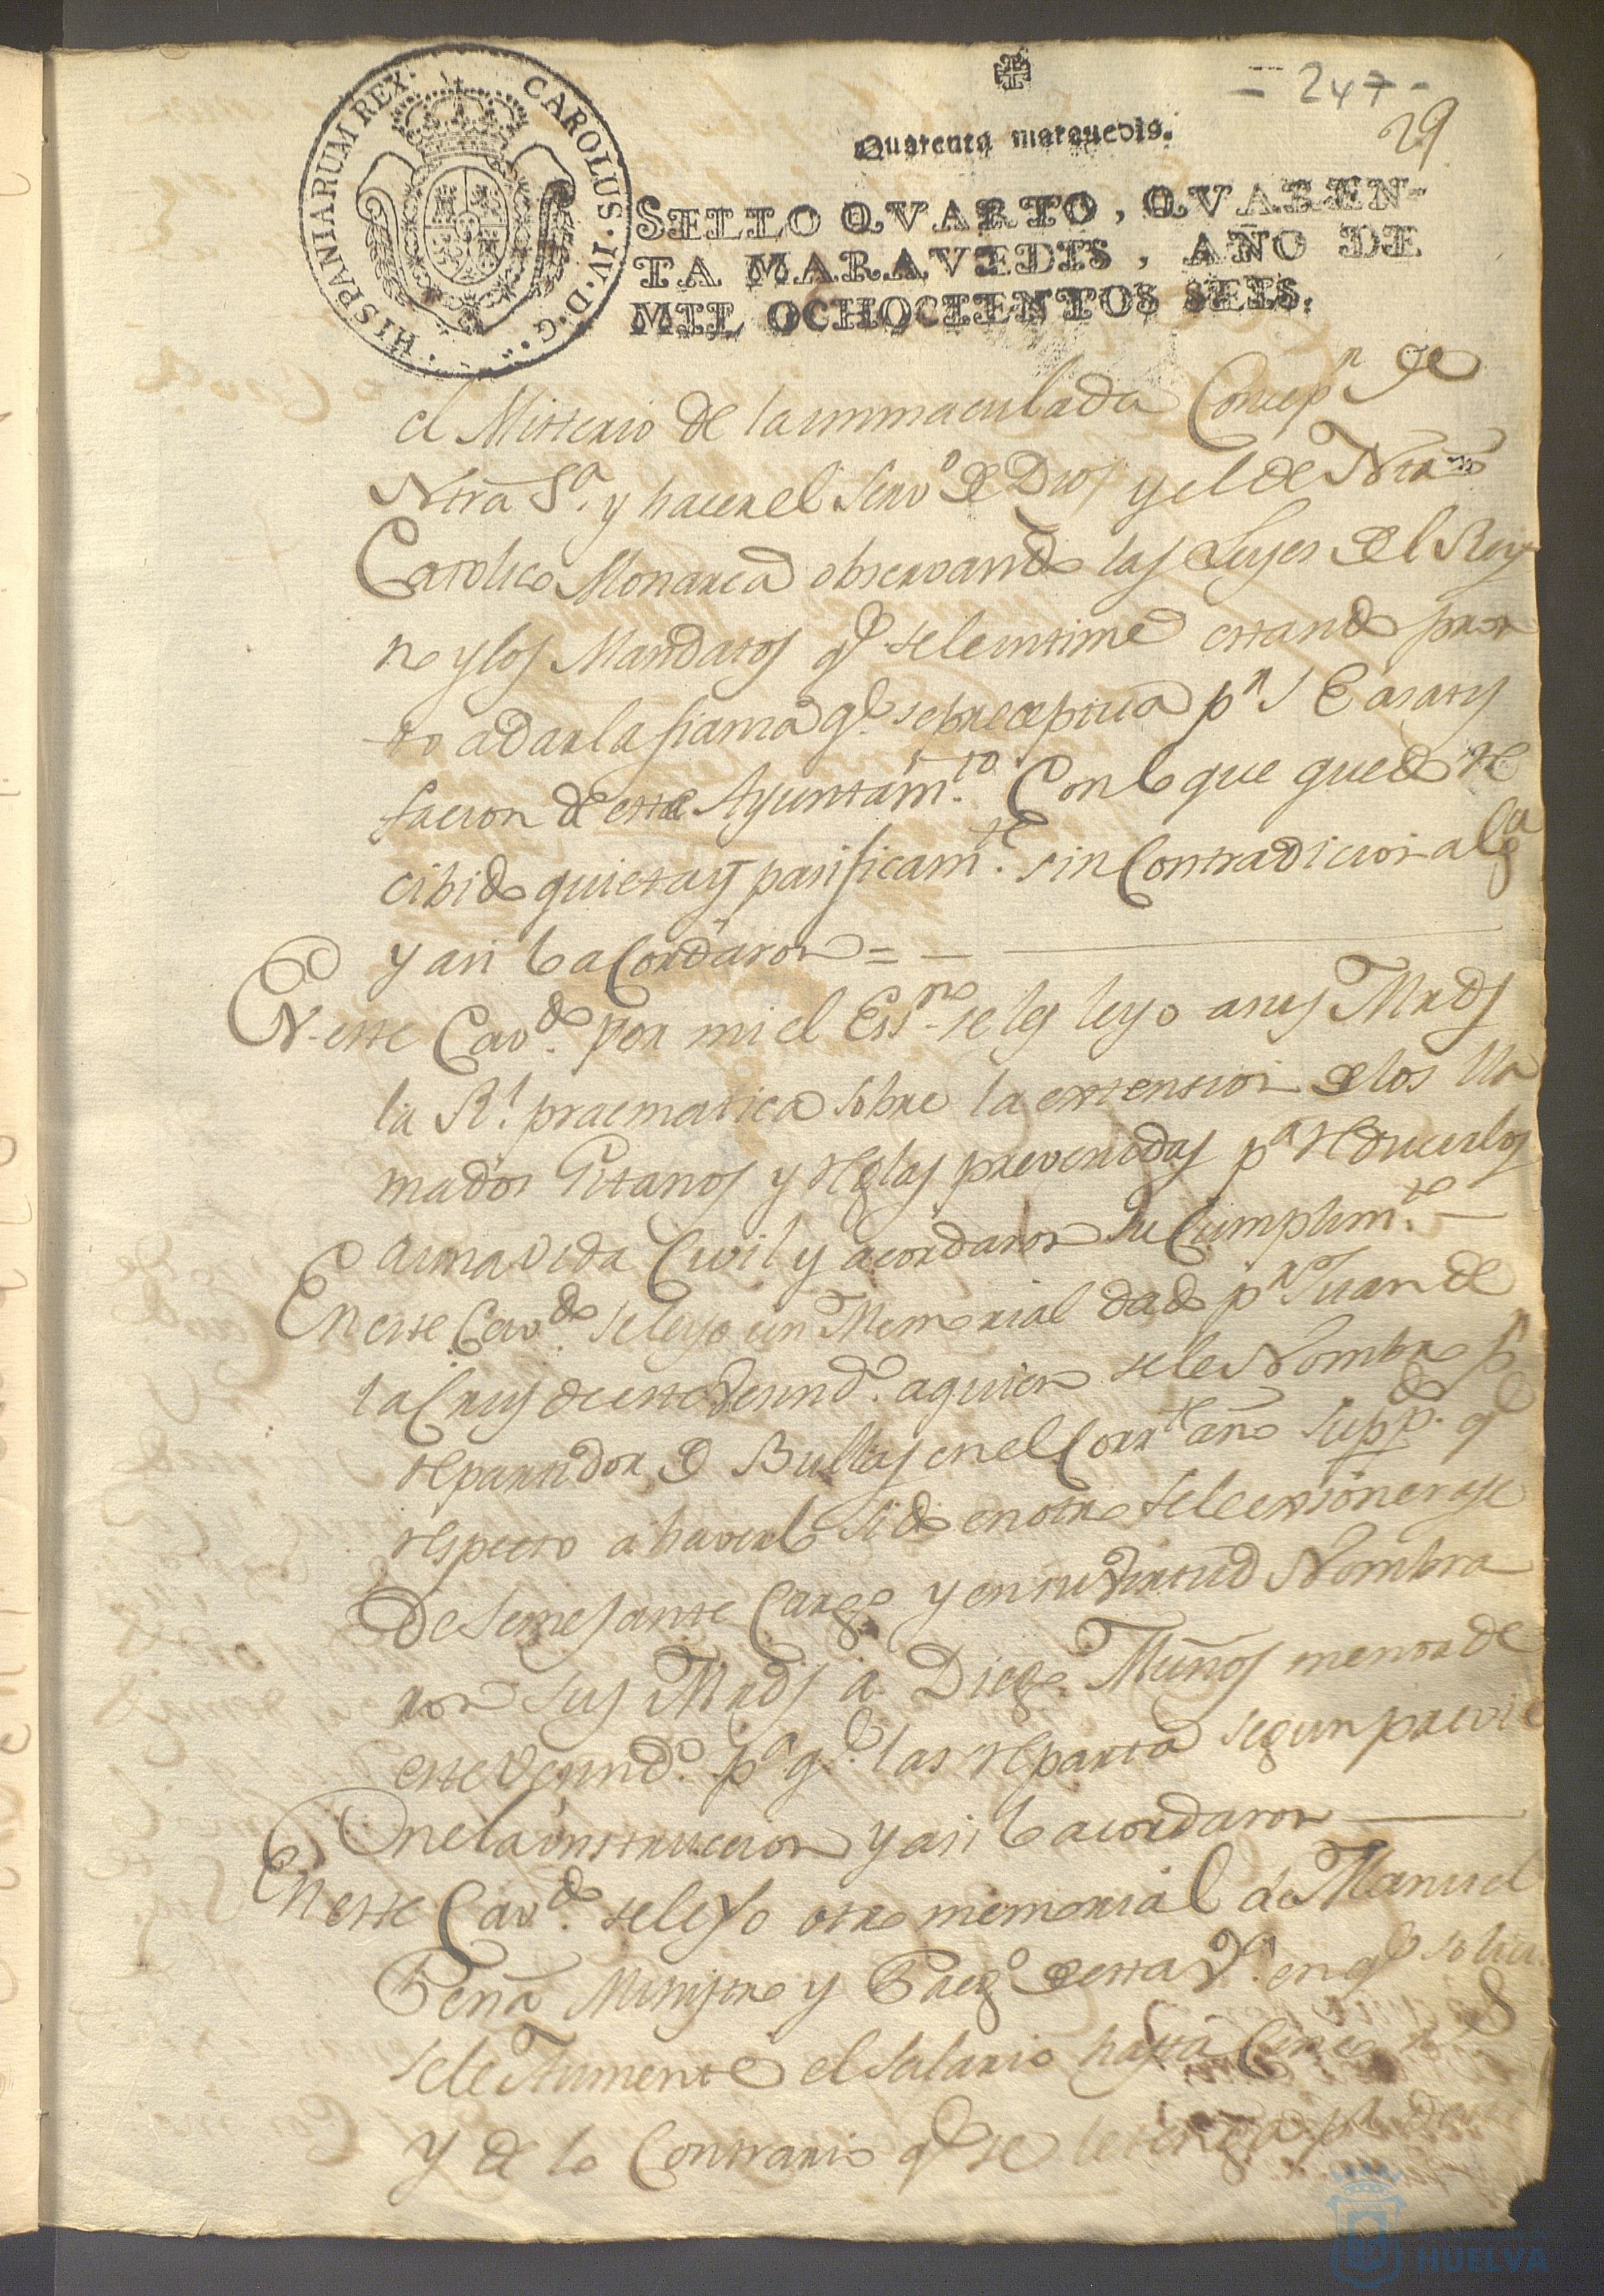 - 247 -
29
Quarenta marauedis.
HISPANIARUM REX. CAROLUS. IV. D. G.
SELLO QVARTO, QVAREN-
TA MARAVEDIS, AÑO DE
MIL OCHOCIENTOS SEIS.
el Misterio de la inmaculada Concepn de
Ntra Sa. y hacer el servo de Dios y el de Ntro
Catolico Monarca observando las Leyes del Rey
no y los Mandatos qe se le intime estando pron
to a dar la fianza qe. se preceptua pr S E a satis
facion de este Ayuntamto. Con lo que quedo re
cibido quieta y pasificamte. sin Contradicion alga
y asi lo aCordaron = -
En este Cavdo. por mi el Essno se les leyo a sus Mrds
la Rl. pracmatica sobre la extension de los lla
mados Gitanos y reglas prevenidas pa reducirlos
a una vida Civil y acordaron su Cumplimto. -
En este Cavdo. se leyo un Memorial dado pr Juan de
la Crus de este Vesindo. a quien se le Nombro pr
repartidor de Bullas en el Corrte año suppdo. qe
respecto a haverlo sido en otro se le exsonerase
de semejante Cargo y en su Virtud Nombra
ron sus Mrds a Diego Muños menor de
este Vesindo. pa qe. las reparta segun previe
ne la instruccion y asi lo acordaron
En este Cavdo. se leyo otro memorial de Manuel
Peña Ministro y Prego de esta Va. en qe solici
se le Aumente el salario hasta Cinco rs
y de lo Contrario qe se le tenga pr
HUELVA